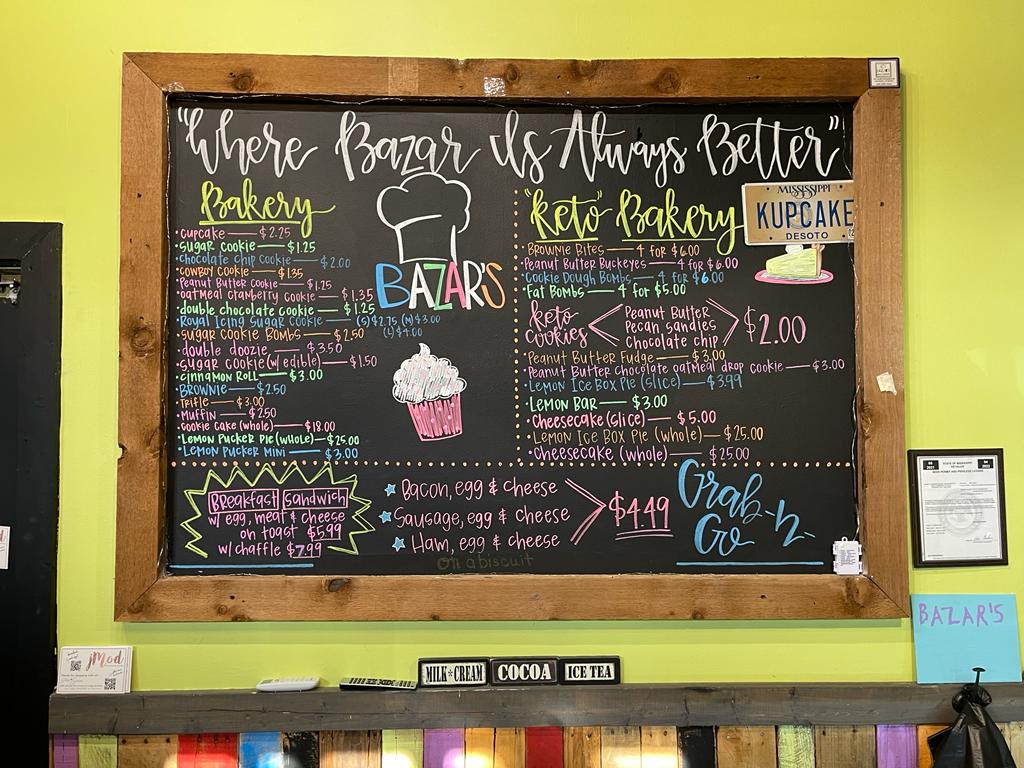 "Where Bazar Is Always Better"
Bakery
• cupcake — $2.25
• sugar cookie — $1.25
• chocolate chip cookie — $2.00
• cowboy cookie — $1.35
• Peanut Butter cookie — $1.25
• oatmeal cranberry cookie — $1.35
• double chocolate cookie — $1.25
• Royal Icing Sugar cookie — (S) $2.75, (M) $3.00
(L) $4.00
• sugar cookie Bombs — $2.50
• double doozie — $3.50
• sugar cookie (w/ edible) — $1.50
• cinnamon Roll — $3.00
• BROWNIE — $2.50
• Trifle — $3.00
• Muffin — $2.50
• cookie cake (whole) — $18.00
• Lemon Pucker Pie (whole) — $25.00
• Lemon Pucker Mini — $3.00
BAZAR'S
"Keto" Bakery
MISSISSIPPI
KUPCAKE
DESOTO
• Brownie Bites — 4 for $6.00
• Peanut Butter Buckeyes — 4 for $6.00
• Cookie Dough Bombs — 4 for $6.00
• Fat Bombs — 4 for $5.00
keto cookies
Peanut Butter
Pecan sandies
Chocolate chip
$2.00
• Peanut Butter Fudge — $3.00
• Peanut Butter chocolate oatmeal drop cookie — $3.00
• Lemon Ice Box Pie (slice) — $3.99
• Lemon Bar — $3.00
• Cheesecake (slice) — $5.00
• Lemon Ice Box Pie (whole) — $25.00
• cheesecake (whole) — $25.00
Breakfast Sandwich
w/ egg, meat & cheese
on toast $5.99
w/ chaffle $7.99
Bacon, egg & cheese
Sausage, egg & cheese
Ham, egg & cheese
on a biscuit
$4.49
Grab-n-
Go
STATE OF MISSISSIPPI
BAZAR'S
jMod
MILK*CREAM
COCOA
ICE TEA